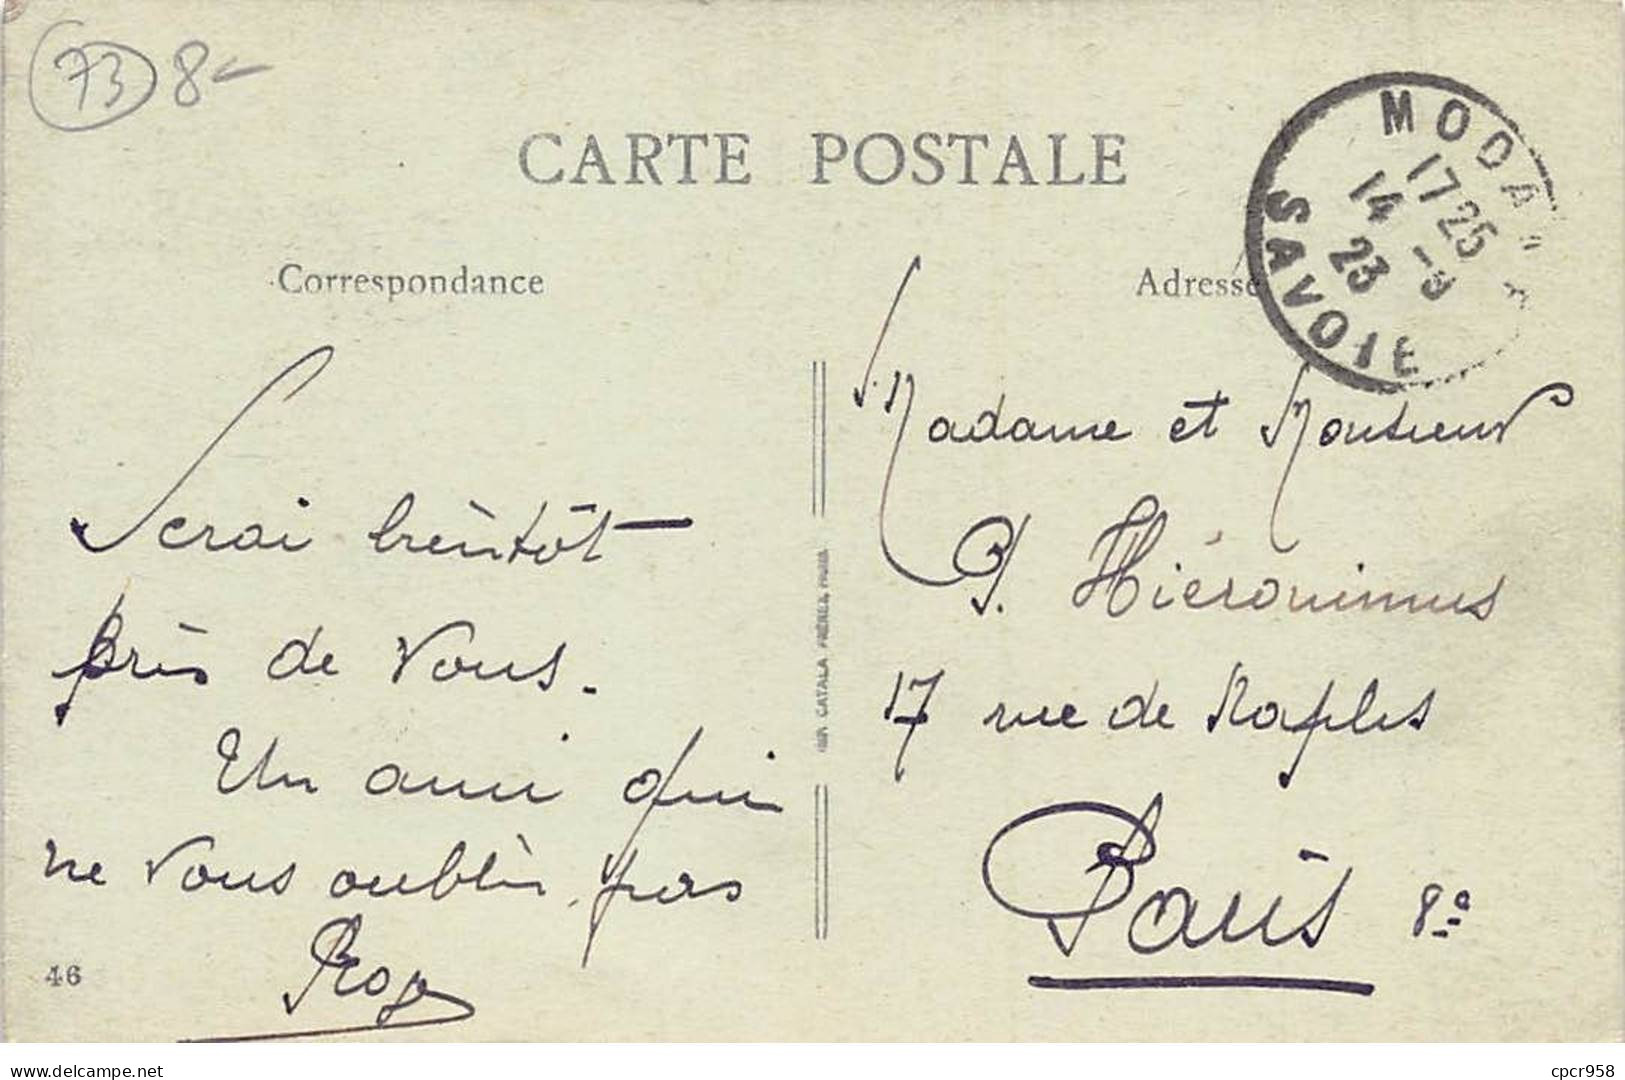 73 8-
CARTE POSTALE
Correspondance
Adresse
MODANE
17 25
14 -9
23
SAVOIE
Serai bientôt
près de vous.
Un ami qui
ne vous oublie pas
46
IMP. CATALA FRÈRES, PARIS
Madame et Monsieur
P. Hiéronimus
17 rue de Naples
Paris 8e
delcampe.net
cpcr958